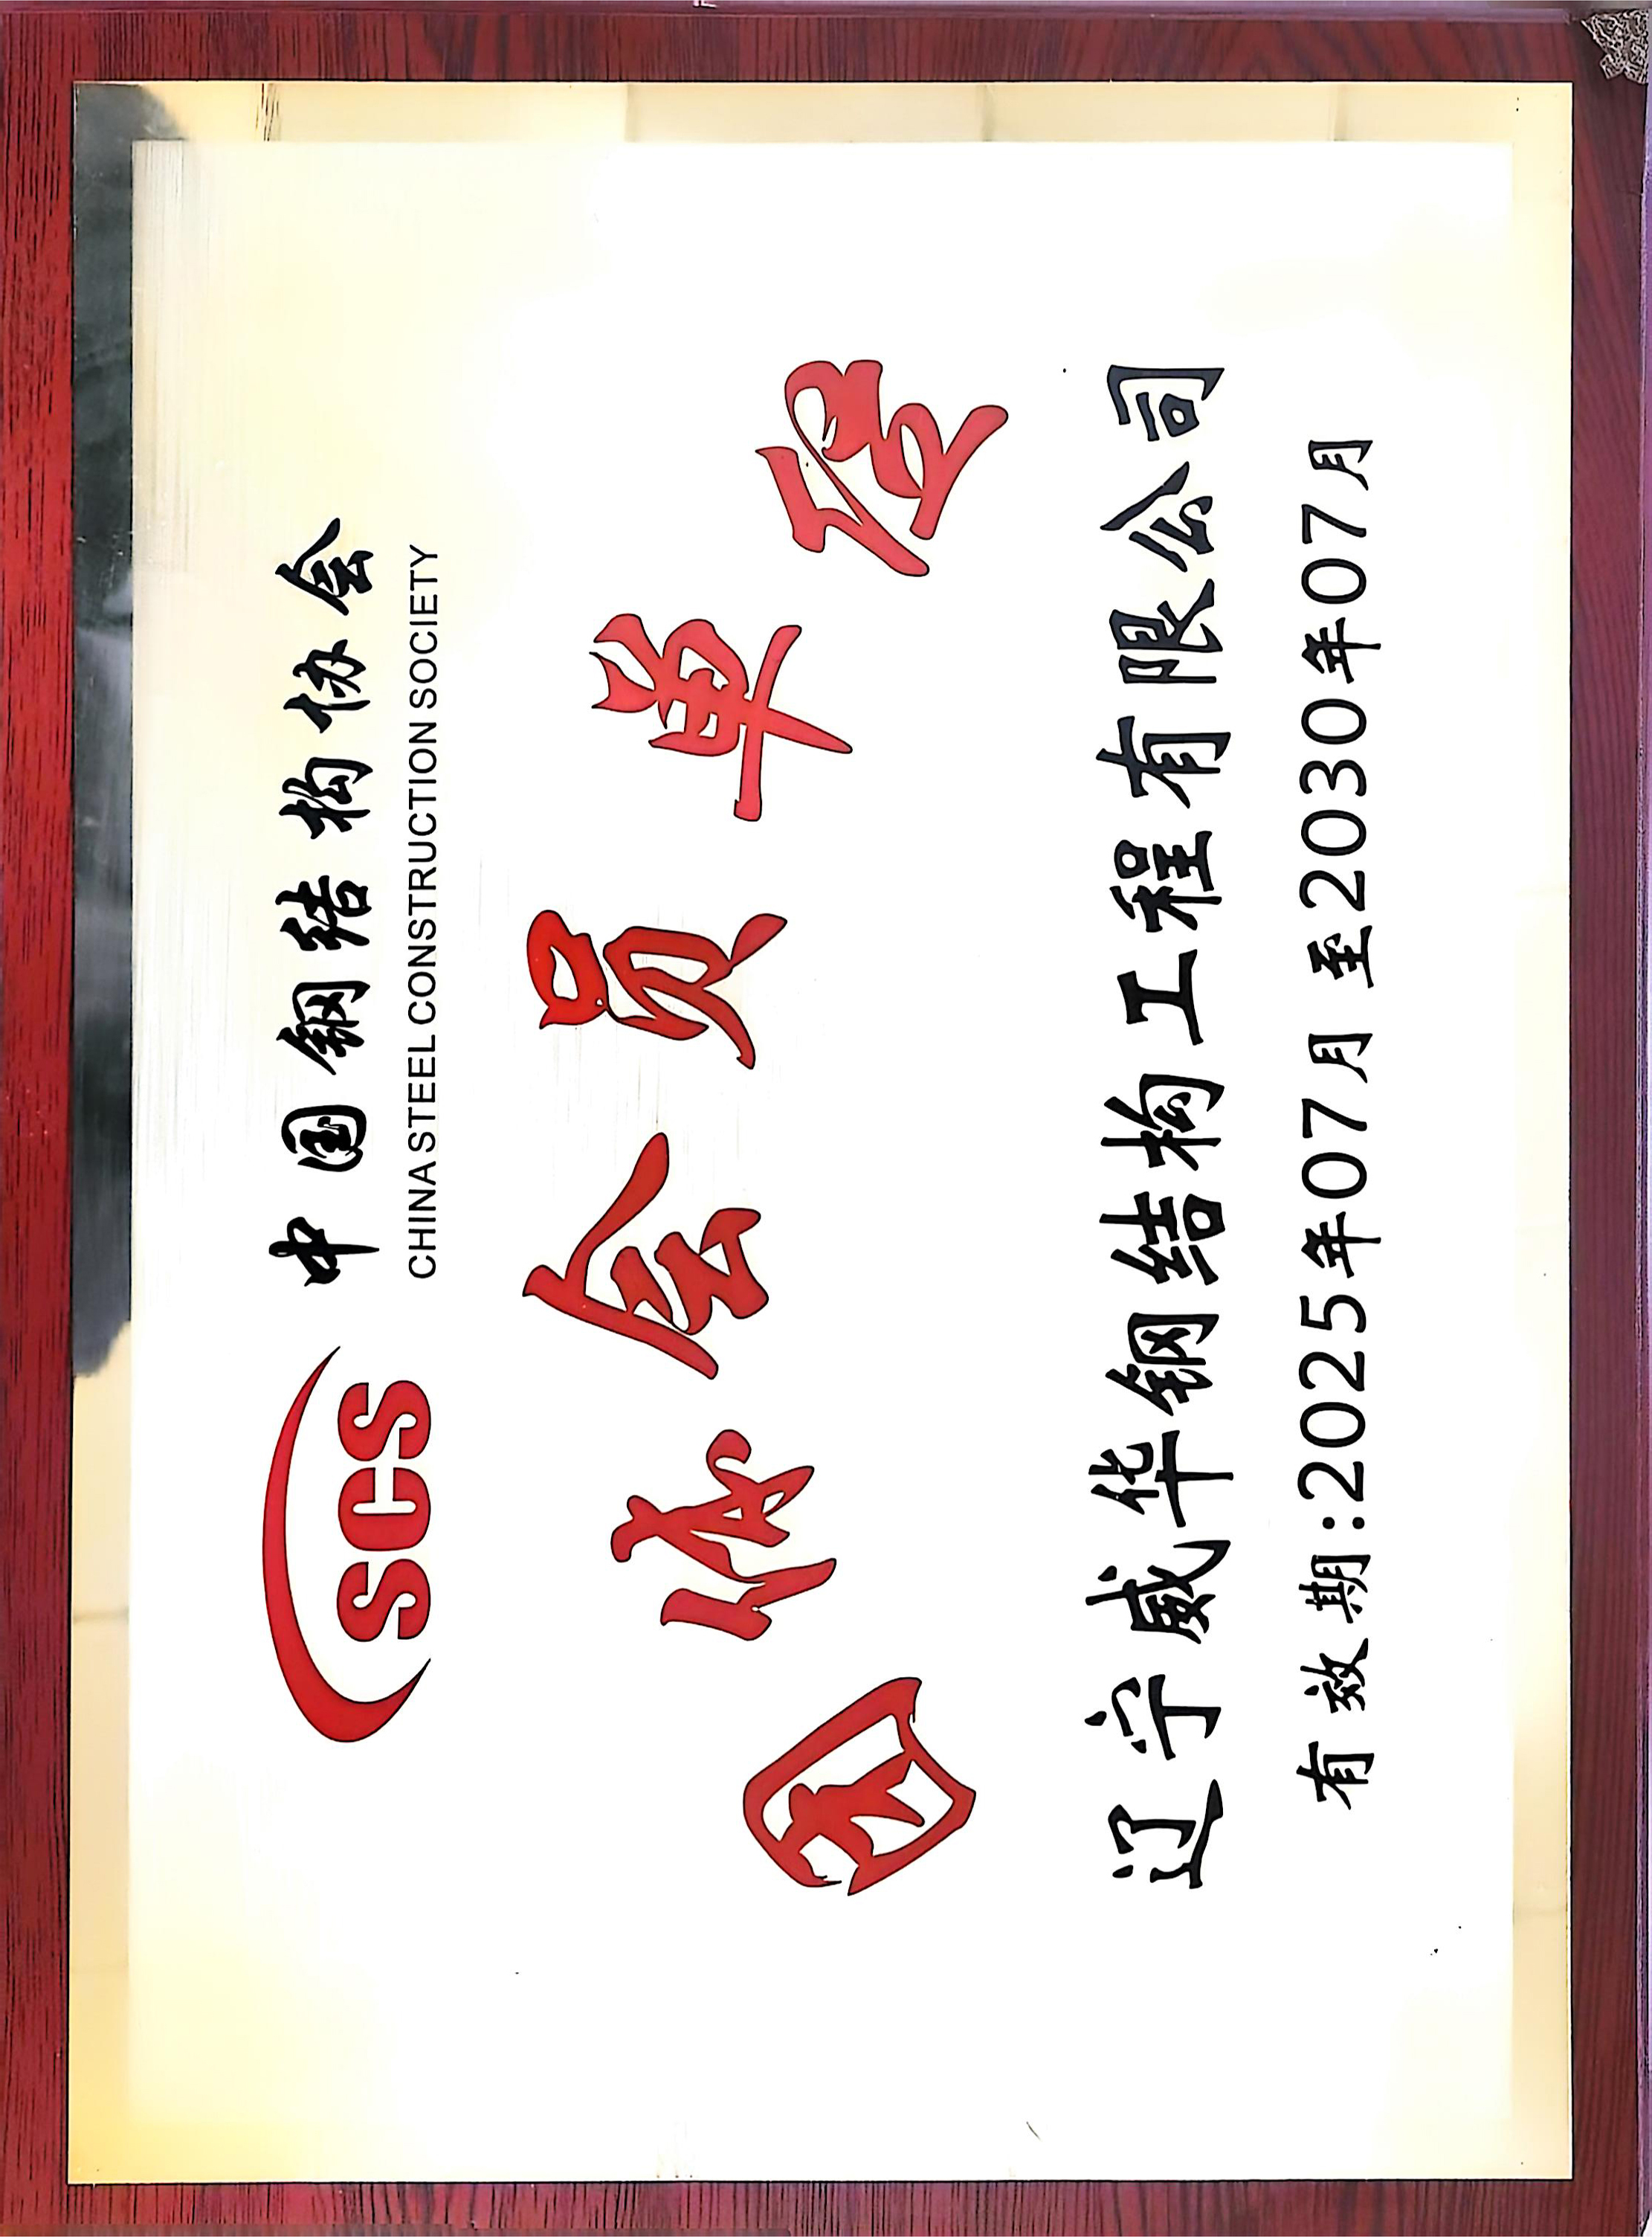 SCS
中国钢结构协会
CHINA STEEL CONSTRUCTION SOCIETY
团体会员单位
辽宁威华钢结构工程有限公司
有效期:2025年07月至2030年07月